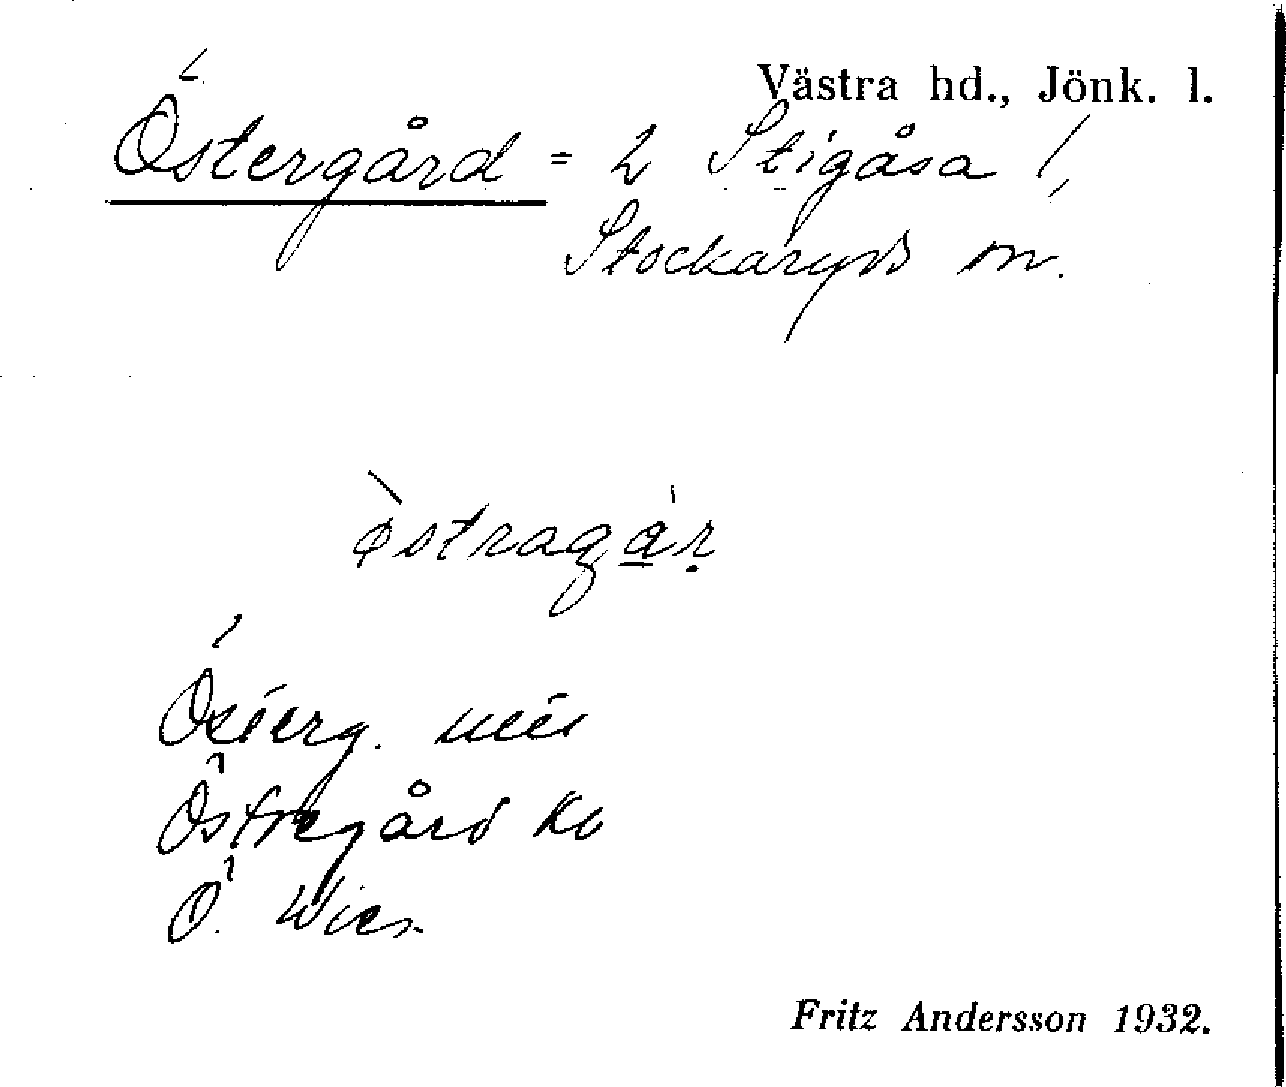 Västra hd., Jönk. l.
Östergård = 2 Stigåsa /,
Stockaryds sn.
östragar
Österg.
Östregård Kb
Ö. Wies.
Fritz Andersson 1932.